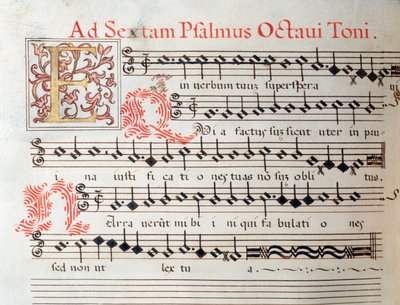 Ad Sextam Psalmus Octaui Toni.
E in uerbum tuuz superspera ui
Q Via factus suz sicut uter in pru
i na iusti fi ca ti o nes tuas no suz obli tus.
N Arra uerūt mi bi i ni qui fa bulati o nes
sed non ut lex tu a